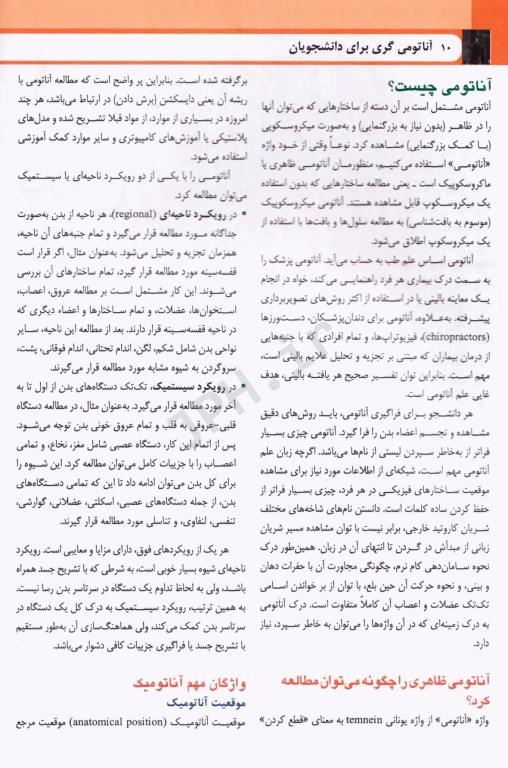 ۱۰ آناتومی گری برای دانشجویان
آناتومی چیست؟
آناتومی مشــتمل است بر آن دسته از ساختارهایی که می‌توان آنها
را در ظاهــر (بدون نیاز به بزرگنمایی) و به‌صورت میکروســکوپی
(بــا کمک بزرگنمایی) مشــاهده کرد. نوعــاً وقتی از خــود واژه
«آناتومی» اســتفاده می‌کنیــم، منظورمــان آناتومــی ظاهری یا
ماکروسکوپیک اسـت ـ یعنی مطالعه ساختارهایی که بدون استفاده
یک میکروسکوپ قابل مشاهده هستند. آناتومی میکروسکوپیک
(موسوم به بافت‌شناسی) به مطالعه سلول‌ها و بافت‌ها با استفاده از
یک میکروسکوپ اطلاق می‌شود.
آناتومی اسـاس علم طب به حساب می‌آید. آناتومی پزشک را
به ســمت درک بیماری هر فرد راهنمایــی می‌کند، خواه در انجام
یــک معاینه بالینی یا در اســتفاده از اکثر روش‌های تصویربرداری
پیشــرفته. به‌علاوه، آناتومی برای دندان‌پزشکان، دسـت‌ورزها
(chiropractors)، فیزیوتراپ‌ها، و تمام افرادی که با جنبه‌هایی
از درمان بیماران که مبتنی بر تجزیه و تحلیل علایم بالینی است،
مهم اســت. بنابراین توان تفســیر صحیح هر یافتــه بالینی، هدف
غایی علم آناتومی است.
هر دانشــجو برای فراگیری آناتومی، بایــد روش‌های دقیق
مشاهده و تجسم اعضاء بدن را فرا گیرد. آناتومی چیزی بسیار
فراتر از به‌خاطر سـپردن لیستی از نام‌ها می‌باشد. اگرچه زبان علم
آناتومی مهم اســت، شبکه‌ای از اطلاعات مورد نیاز برای مشاهده
موقعیت ســاختارهای فیزیکــی در هر فرد، چیزی بســیار فراتر از
حفظ کردن ساده کلمات است. دانستن نام‌های شاخه‌های مختلف
شــریان کاروتید خارجی، برابر نیست با توان مشاهده مسیر شریان
زبانی از مبدأش در گــردن تا انتهای آن در زبان. همین‌طور درک
نحوه سـامان‌دهی کام نرم، چگونگی مجاورت آن با حفرات دهان
و بینی، و نحوه حرکت آن حین بلع، با توان از بر خواندن اسـامی
تک‌تک عضلات و اعصاب آن کاملاً متفاوت است. درک آناتومی
به درک زمینه‌ای که در آن واژه‌ها را می‌توان به خاطر سـپرد، نیاز
دارد.
آناتومی ظاهری را چگونه می‌توان مطالعه
کرد؟
واژه «آناتومی» از واژه یونانی temnein به معنای «قطع کردن»
برگرفته شده اسـت. بنابراین پر واضح است که مطالعه آناتومی با
ریشه آن یعنی دایسکشن (برش دادن) در ارتباط می‌باشد، هر چند
امروزه در بسـیاری از موارد، از مواد قبلا تشـریح شده و مدل‌های
پلاستیکی یا آموزش‌های کامپیوتری و سایر موارد کمک آموزشی
استفاده می‌شود.
آناتومــی را با یکی از دو رویکــرد ناحیه‌ای یا سیســتمیک
می‌توان مطالعه کرد.
▪ در رویکــرد ناحیه‌ای (regional)، هر ناحیه از بدن به‌صورت
جداگانه مــورد مطالعه قرار می‌گیرد و تمام جنبه‌های آن ناحیه،
همزمان تجزیه و تحلیل می‌شود. به‌عنوان مثال، اگر قرار است
قفسه‌سینه مورد مطالعه قرار گیرد، تمام ساختارهای آن بررسی
می‌شــوند. این کار مشــتمل اســت بر مطالعه عروق، اعصاب،
اسـتخوان‌ها، عضلات، و تمام سـاختارها و اعضاء دیگری که
در ناحیه قفسه‌سـینه قرار دارند. بعد از مطالعه این ناحیه، سـایر
نواحی بدن شامل شکم، لگن، اندام تحتانی، اندام فوقانی، پشت،
سروگردن به شیوه مشابه مورد مطالعه قرار می‌گیرند.
▪ در رویکرد سیستمیک، تک‌تک دستگاه‌های بدن از اول تا به
آخر مورد مطالعه قرار می‌گیرد. به‌عنوان مثال، در مطالعه دستگاه
قلبی-عروقی به قلب و تمام عروق خونی بدن توجه می‌شـود.
پس از اتمام این کار، دستگاه عصبی شامل مغز، نخاع، و تمامی
اعصــاب را با جزییات کامل می‌توان مطالعه کرد. این شــیوه را
برای کل بدن می‌توان ادامه داد تا این که تمامی دسـتگاه‌های
بدن، از جمله دستگاه‌های عصبی، اسکلتی، عضلانی، گوارشی،
تنفسی، لنفاوی، و تناسلی مورد مطالعه قرار گیرند.
هر یک از رویکردهای فوق، دارای مزایا و معایبی است. رویکرد
ناحیه‌ای شیوه بسیار خوبی است، به شرطی که با تشریح جسد همراه
باشــد، ولی به لحاظ تداوم یک دستگاه در سرتاسر بدن رسا نیست.
به همین ترتیب، رویکرد سیســتمیک به درک کل یک دستگاه در
سرتاسر بدن کمک می‌کند، ولی هماهنگ‌سازی آن به‌طور مستقیم
با تشریح جسد یا فراگیری جزییات کافی دشوار می‌باشد.
واژگان مهم آناتومیک
موقعیت آناتومیک
موقعیــت آناتومیــک (anatomical position) موقعیت مرجع